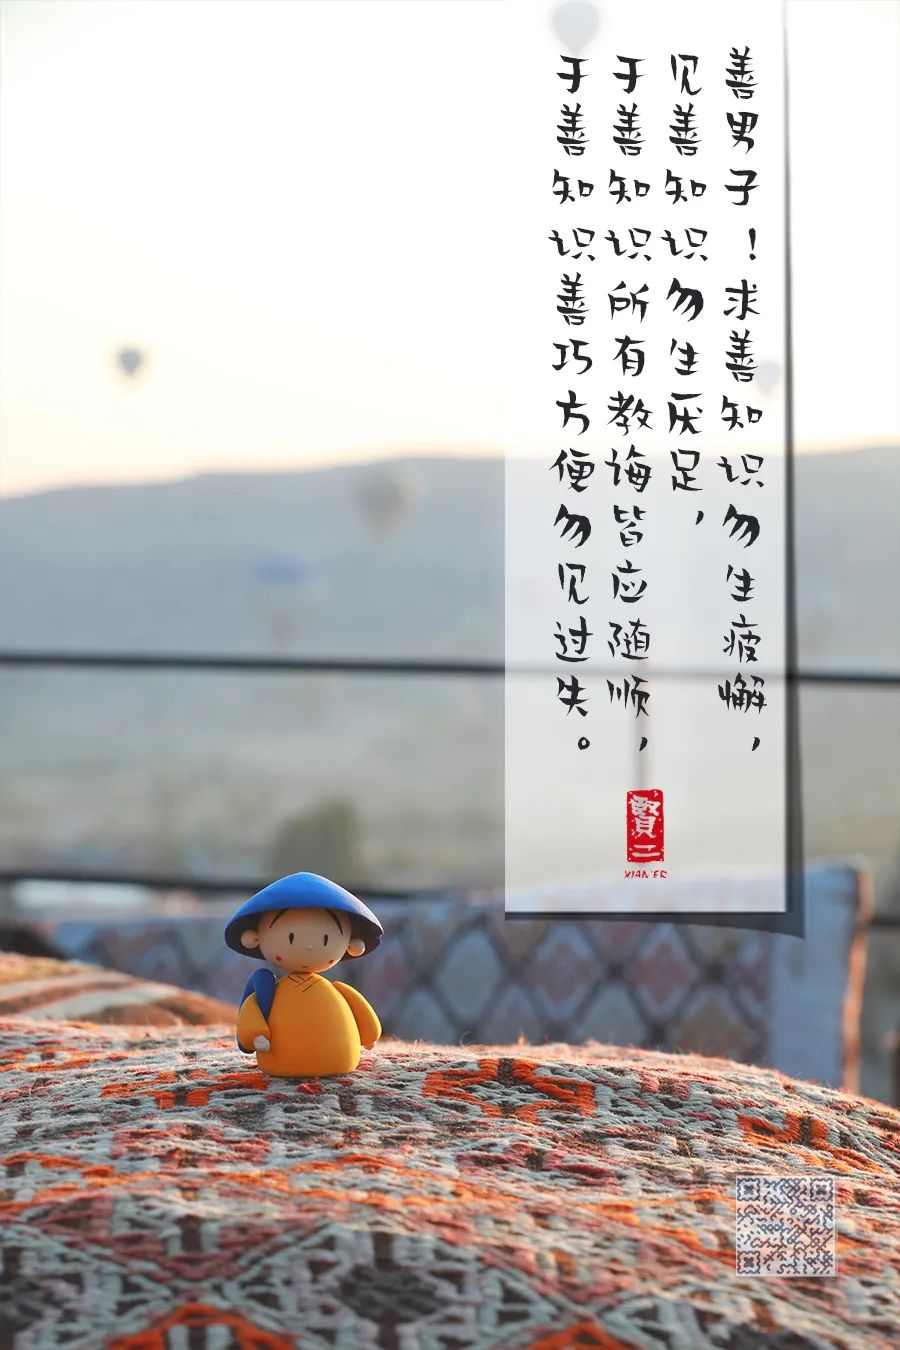 善男子！求善知识勿生疲懈，
见善知识勿生厌足，
于善知识所有教诲皆应随顺，
于善知识善巧方便勿见过失。
賢二
XIAN'ER